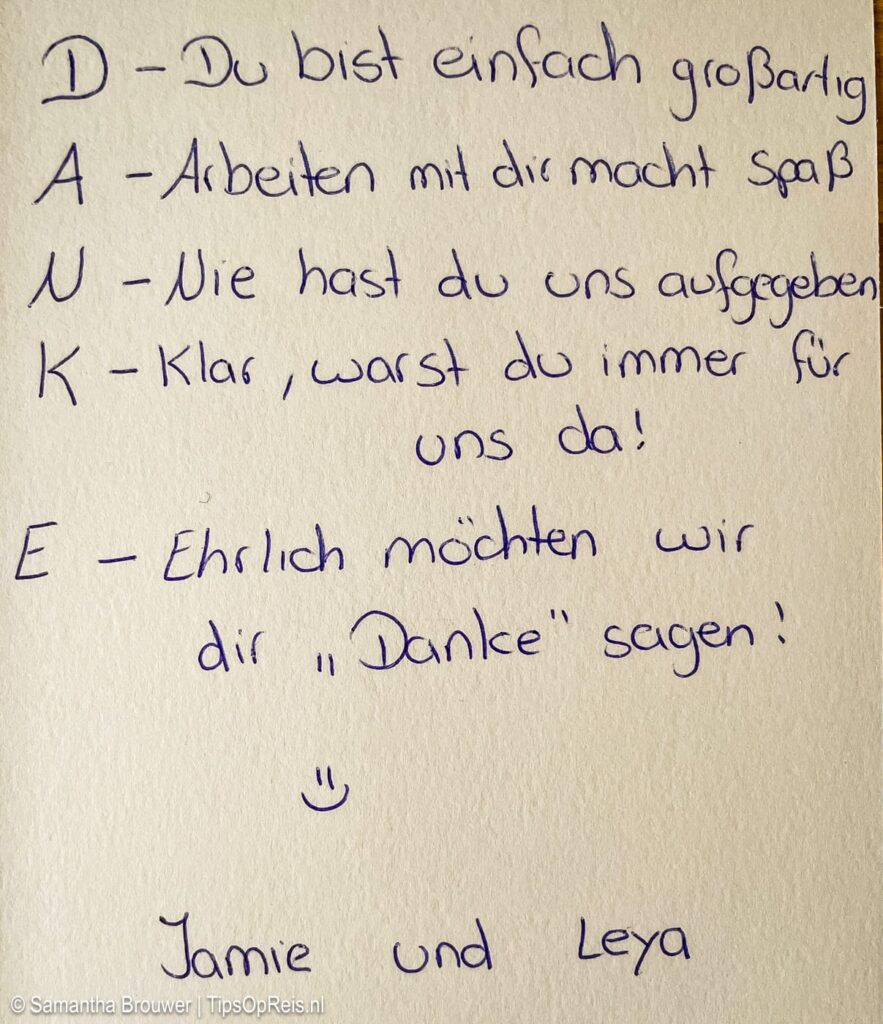 D - Du bist einfach großartig
A - Arbeiten mit dir macht Spaß
N - Nie hast du uns aufgegeben
K - Klar, warst du immer für
uns da!
E - Ehrlich möchten wir
dir „Danke" sagen!
Jamie und Leya
© Samantha Brouwer | TipsOpReis.nl